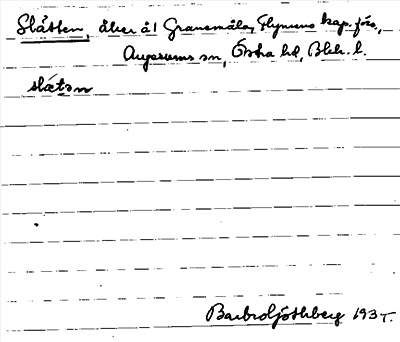 Slåtten, åker å! Granemåla, Flymens kap. förs.,
Augerums sn, Östra hd, Blek. l.
slåtən
Barbro Ljöthberg 1937.